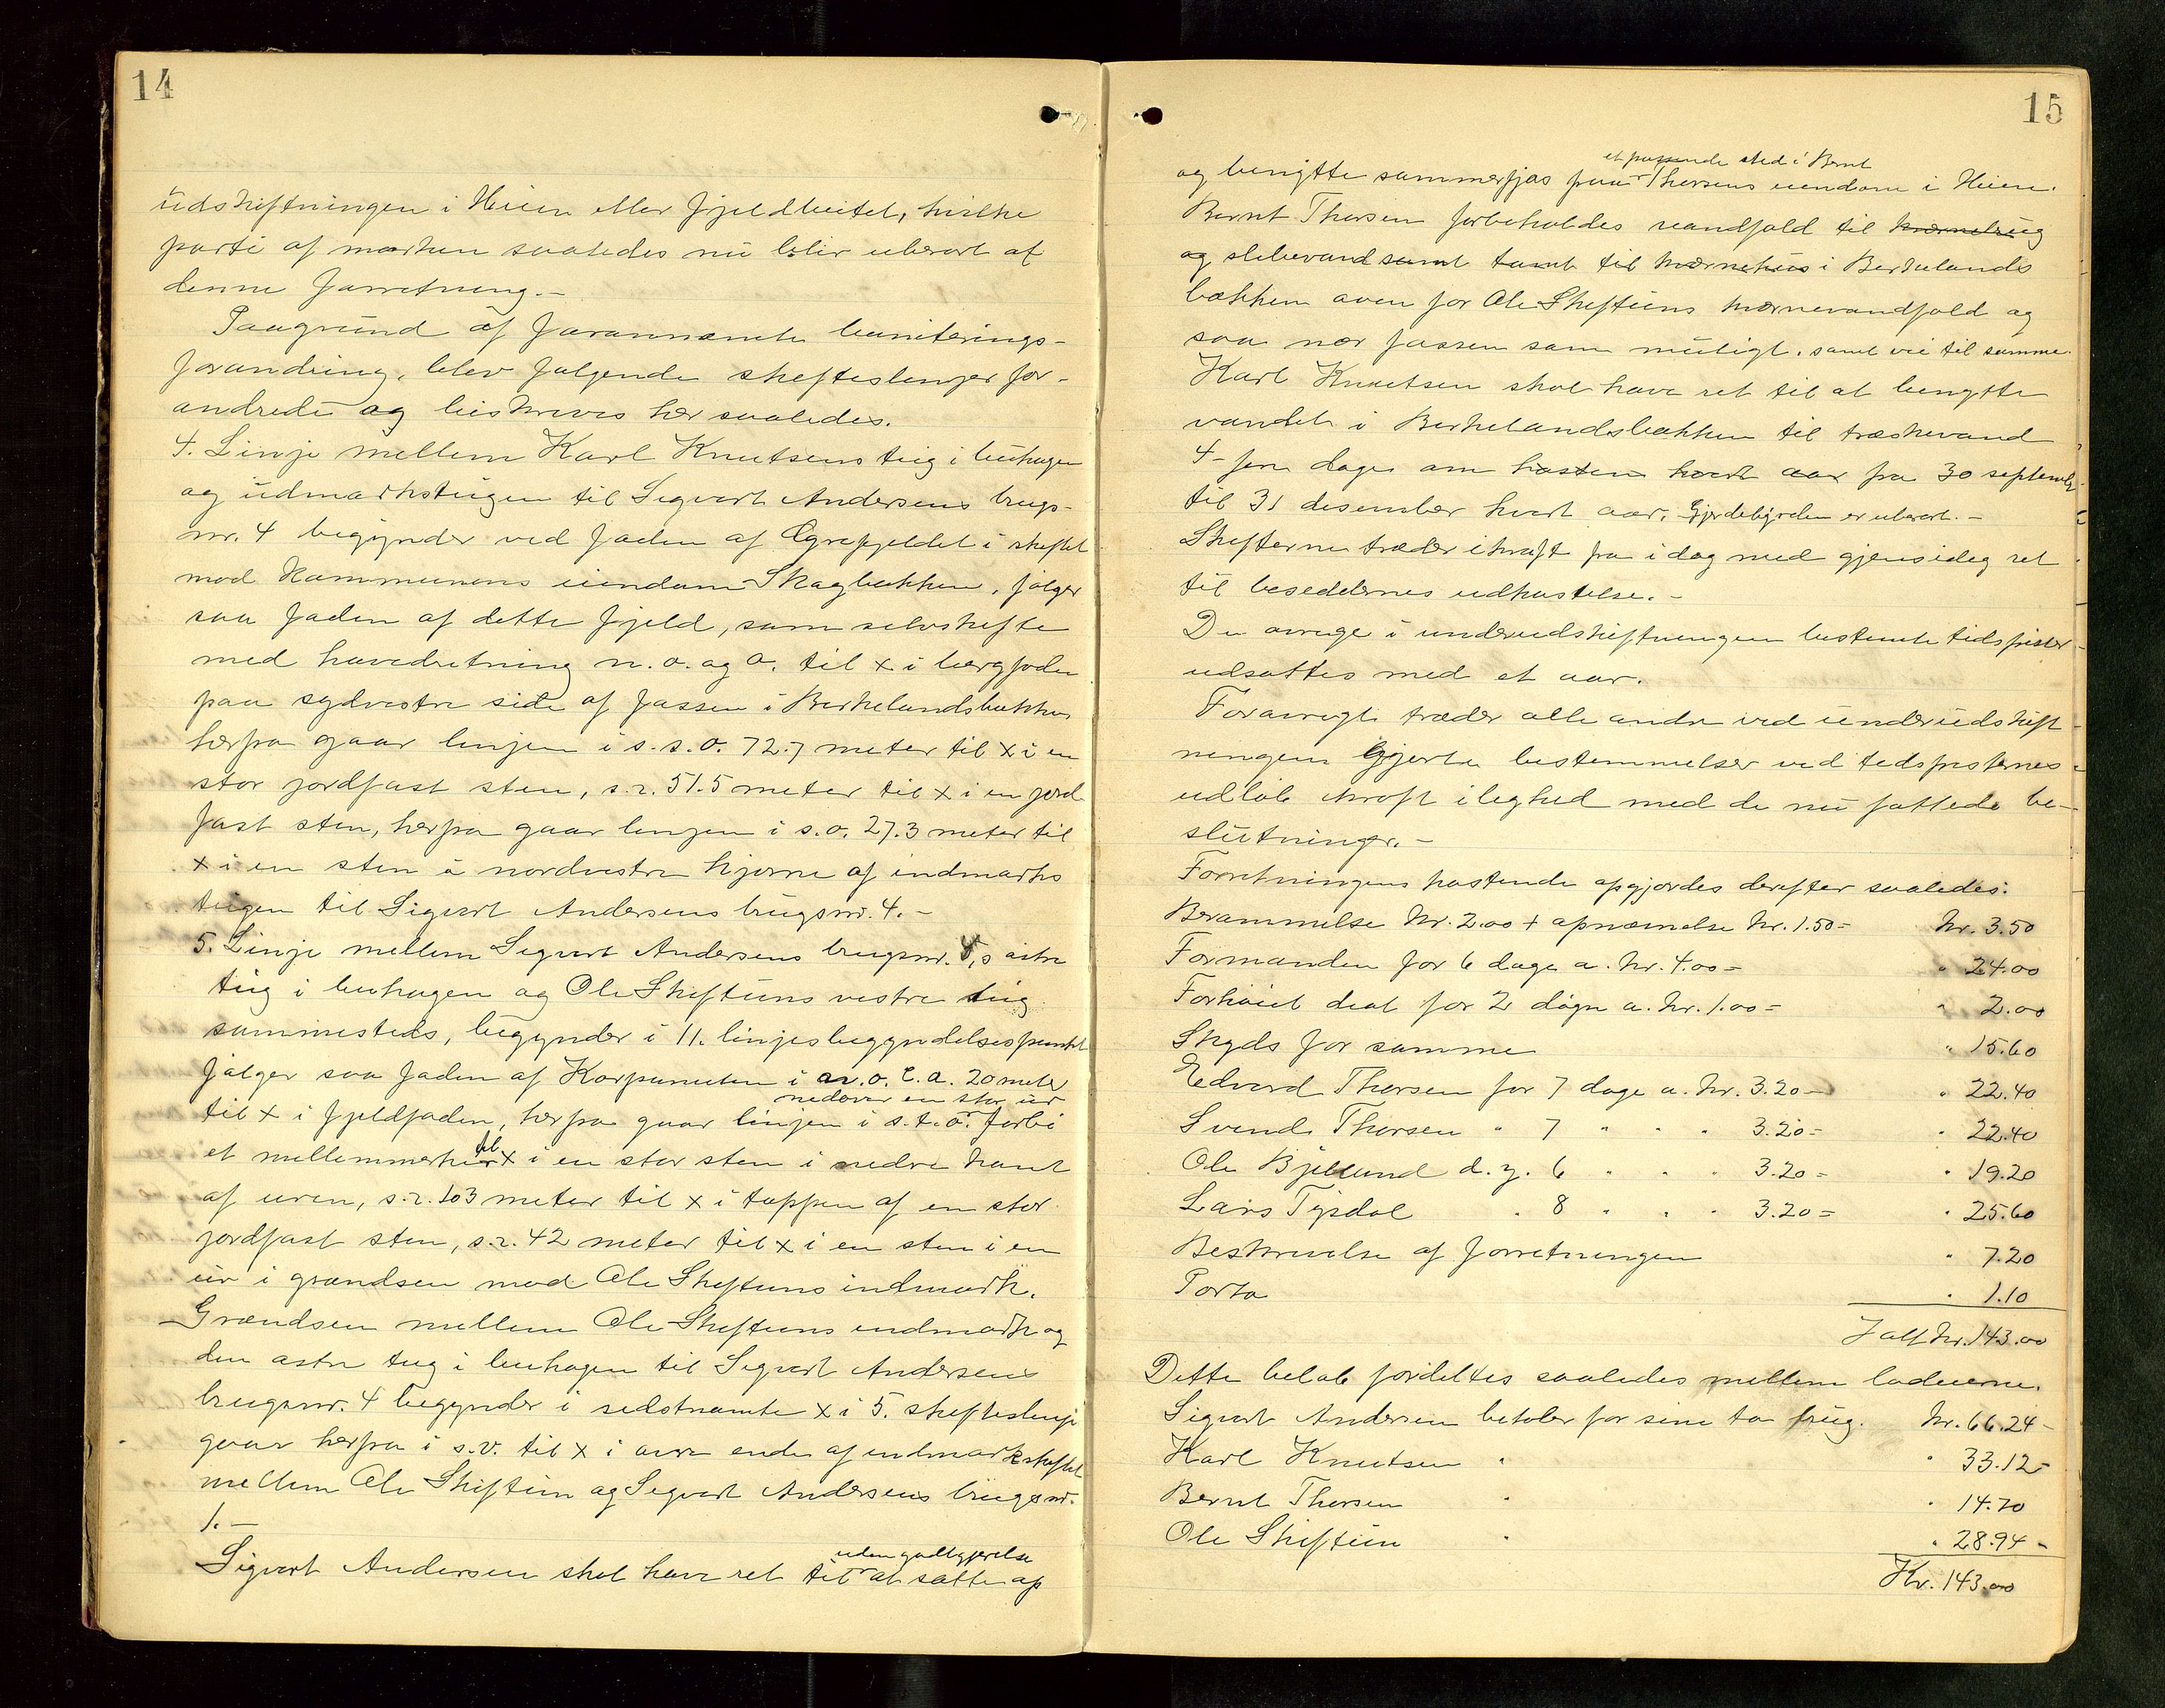 14
udskiftningen i Heien eller fjeldbeitet, hvilke
parti af marken saaledes nu blir uberørt af
denne forretning.-
Paagrund af forannævnte boniterings-
forandring, blev følgende skifteslinjer for-
andrede og beskrives her saaledes.
4. Linje mellem Karl Knutsens teig i buhagen
og udmarksteigen til Sigvart Andersens brugs-
nr. 4 begynder ved foden af Øgrefjeldet i skiftet
mod Kommunens eiendom Skagbakken, følger
saa foden af dette fjeld, som selvskifte
med hovedretning n.o. og o. til x i bergfoden
paa sydvestre side af fossen i Berkelandsbækken
herfra gaar linjen i s.s.o. 72.7 meter til x i en
stor jordfast sten, s.r. 51.5 meter til x i en jord
fast sten, herfra gaar linjen i s.o. 27.3 meter til
x i en sten i nordvestre hjørne af indmarks
teigen til Sigvart Andersens brugsnr. 4.-
5. Linje mellem Sigvart Andersens brugsnr. 4,s østre
teig i buhagen og Ole Skiftuns vestre teig
sammesteds, begynder i 11. linjes begyndelsespunkt
følger saa foden af Korpanuten i o. c.a. 20 meter
nedover en stor ur
til x i fjeldfoden, herfra gaar linjen i s.t.o. forbi
til
et mellemmerke x i en stor sten i nedre kant
af uren, s.r. 103 meter til x i toppen af en stor
jordfast sten, s.r. 42 meter til x i en sten i en
ur i grændsen mod Ole Skiftuns indmark.
Grændsen mellem Ole Skiftuns indmark og
den østre teig i buhagen til Sigvart Andersens
brugsnr. 4 begynder i sidstnævnte x i 5. skifteslinje
gaar herfra i s.v. til x i øvre ende af indmarkskiftet
mellem Ole Skiftun og Sigvart Andersens brugsnr.
1.-
uden godtgjørelse
Sigvart Andersen skal have ret til at sætte op
15
et passende sted i Bernt
og benytte sommerfjøs paa Thorsens eiendom i Heien.
Bernt Thorsen forbeholdes vandfald til kværnebrug
og slibevand samt tomt til kværnehus i Berkelands
bækken oven for Ole Skiftuns kværnevandfald og
saa nær fossen som muligt. samt vei til samme.
Karl Knutsen skal have ret til at benytte
vandet i Berkelandsbækken til træskevand
4- fire dage om høsten hvert aar fra 30 september
til 31 desember hvert aar. Gjerdebyrden er uberørt.-
Skifterne træder i kraft fra i dag med gjensidig ret
til besæddernes udhøstelse.-
De øvrige i underudskiftningen bestemte tidsfrister
udsættes med et aar.
Forøvrigt træder alle andre ved underudskift-
ningen gjorte bestemmelser ved tidsfristernes
udløb ikraft ilighed med de nu fattede be-
slutninger.-
Forretningens kostende opgjordes derefter saaledes:
Berammelse kr. 2.00 + opnævnelse kr. 1.50 = kr. 3.50
Formanden for 6 dage a. kr. 4.00 = " 24.00
Forhøiet diæt for 2 døgn a. kr. 1.00 = " 2.00
Skyds for samme " 15.60
Edvard Thorsen for 7 dage a. kr. 3.20 = " 22.40
Svend Thorsen " 7 " " " 3.20 = " 22.40
Ole Bjelland d.y. 6 " " " 3.20 = " 19.20
Lars Tysdal " 8 " " " 3.20 = " 25.60
Beskrivelse af forretningen " 7.20
Porto " 1.10
I alt kr. 143.00
Dette beløb fordeltes saaledes mellem lodeierne.
Sigvart Andersen betaler for sine to brug. kr. 66.24 -
Karl Knutsen " " 33.12 -
Bernt Thorsen " " 14.70
Ole Skiftun " " 28.94 -
Kr. 143.00